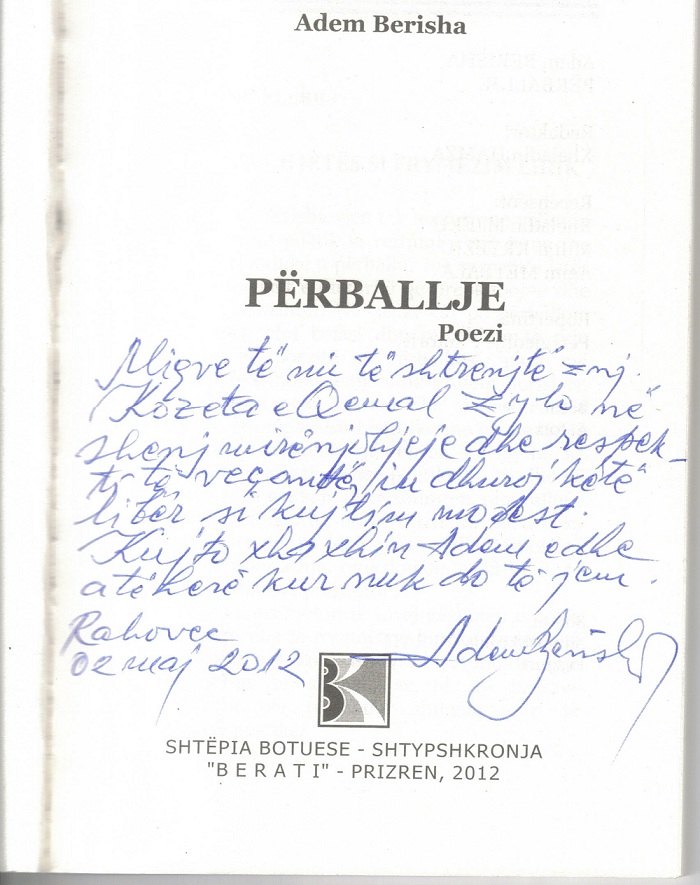 Adem Berisha
PËRBALLJE
Poezi
Miqve të mi të shtrenjtë znj.
Kozeta e Qemal Zylo në
shenj mirënjohjeje dhe respek-
ti të veçantë, iu dhuroj këtë
libër si kujtim modest.
Kujto xhaxhin Adem edhe
atëherë kur nuk do të jem.
Rahovec
02 maj 2012 Adem Berisha
SHTËPIA BOTUESE - SHTYPSHKRONJA
"B E R A T I" - PRIZREN, 2012